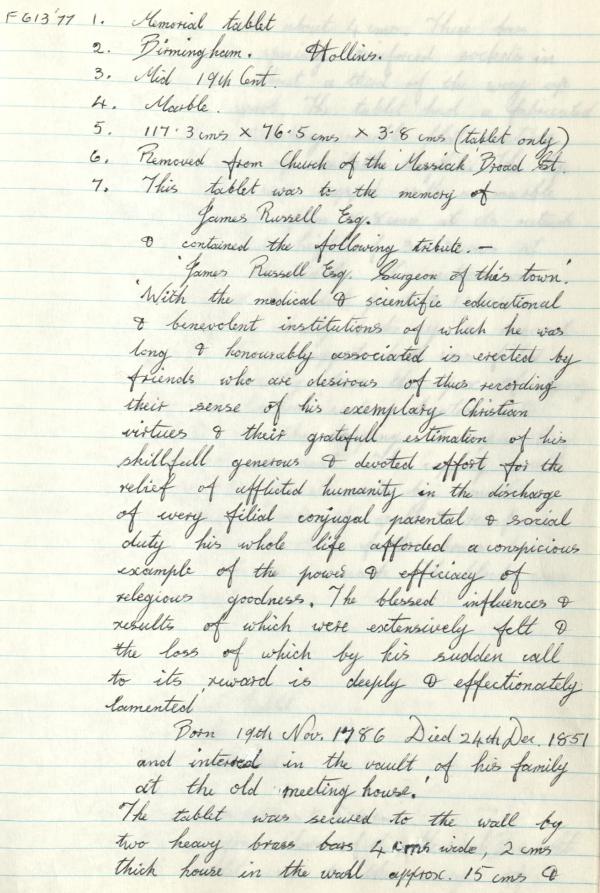 F613'77 1. Memorial tablet
2. Birmingham. Hollins.
3. Mid 19th Cent.
4. Marble.
5. 117·3 cms × 76·5 cms × 3·8 cms (tablet only)
6. Removed from Church of the Messiah Broad St.
7. This tablet was to the memory of
James Russell Esq.
& contained the following tribute. —
'James Russell Esq. Surgeon of this town'.
'With the medical & scientific educational
& benevolent institutions of which he was
long & honourably associated is erected by
friends who are desirous of thus recording
their sense of his exemplary Christian
virtues & their gratefull estimation of his
skillfull generous & devoted effort for the
relief of afflicted humanity in the discharge
of every filial conjugal parental & social
duty his whole life afforded a conspicious
example of the power & efficiacy of
relegious goodness. The blessed influences &
results of which were extensively felt &
the loss of which by his sudden call
to its reward is deeply & effectionately
lamented'
Born 19th Nov. 1786 Died 24th Dec. 1851
and interred in the vault of his family
at the old meeting house.'
The tablet was secured to the wall by
two heavy brass bars 4 cms wide, 2 cms
thick house in the wall approx. 15 cms &